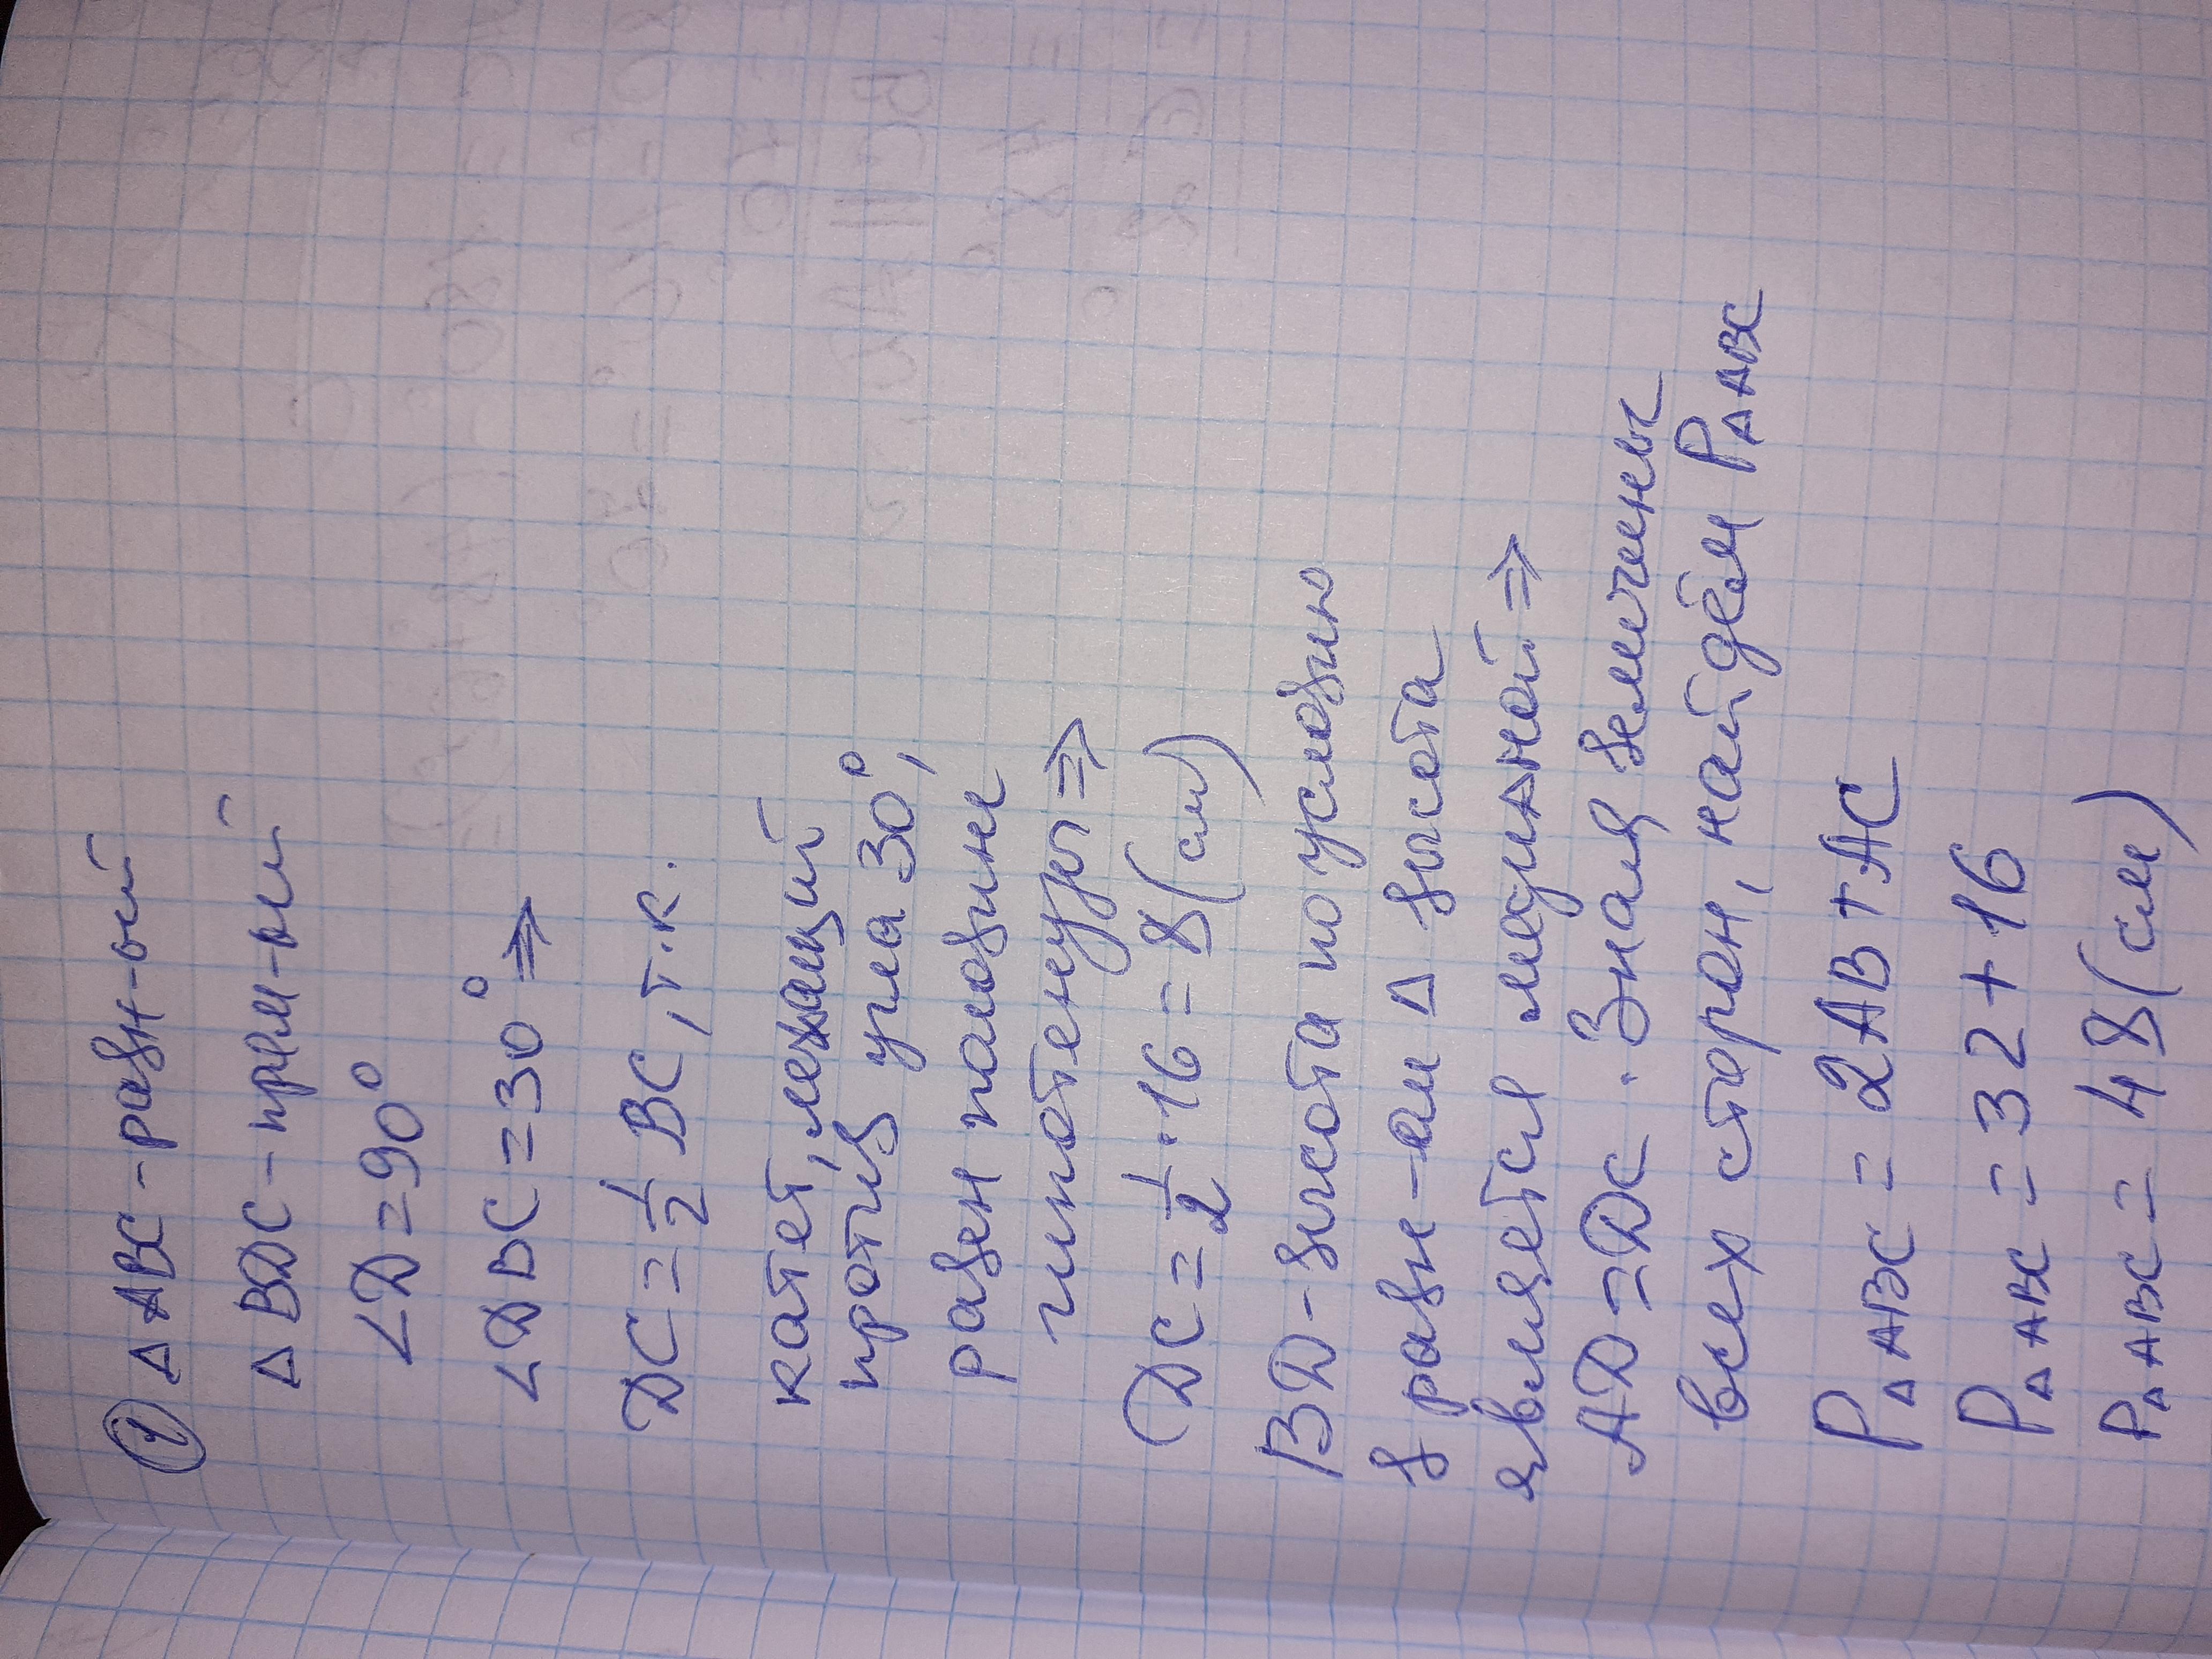 ① △ ABC - равн-ый
△ BDC - прям-ый
∠D = 90°
∠DBC = 30° ⇒
DC = 1/2 BC, т.к.
катет, лежащий
против угла 30°,
равен половине
гипотенузы ⇒
DC = 1/2 · 16 = 8 (см)
BD - высота по условию
в равн-ем △ высота
является медианой ⇒
AD = DC. Зная величины
всех сторон, найдём P△ABC
P△ABC = 2AB + AC
P△ABC = 32 + 16
P△ABC = 48 (см)